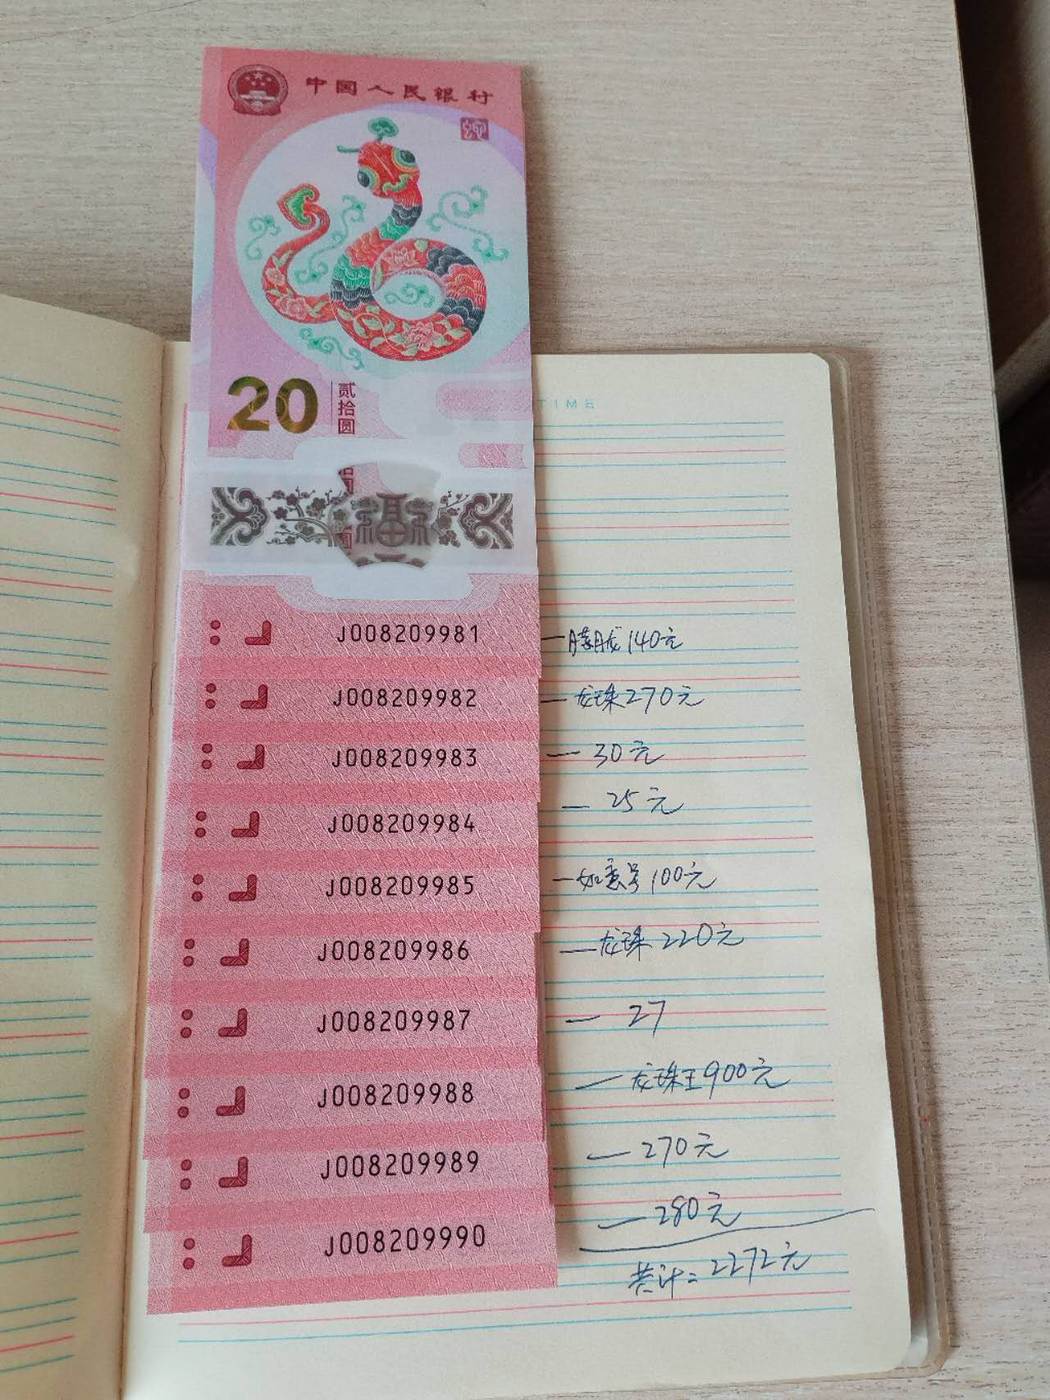 中国人民银行
20 贰拾圆
TIME
福
J008209981 — 朦胧龙 140元
J008209982 — 龙珠 270元
J008209983 — 30元
J008209984 — 25元
J008209985 — 如意号 100元
J008209986 — 龙珠 220元
J008209987 — 27
J008209988 — 龙珠王 900元
J008209989 — 270元
J008209990 — 280元
共计= 2272元